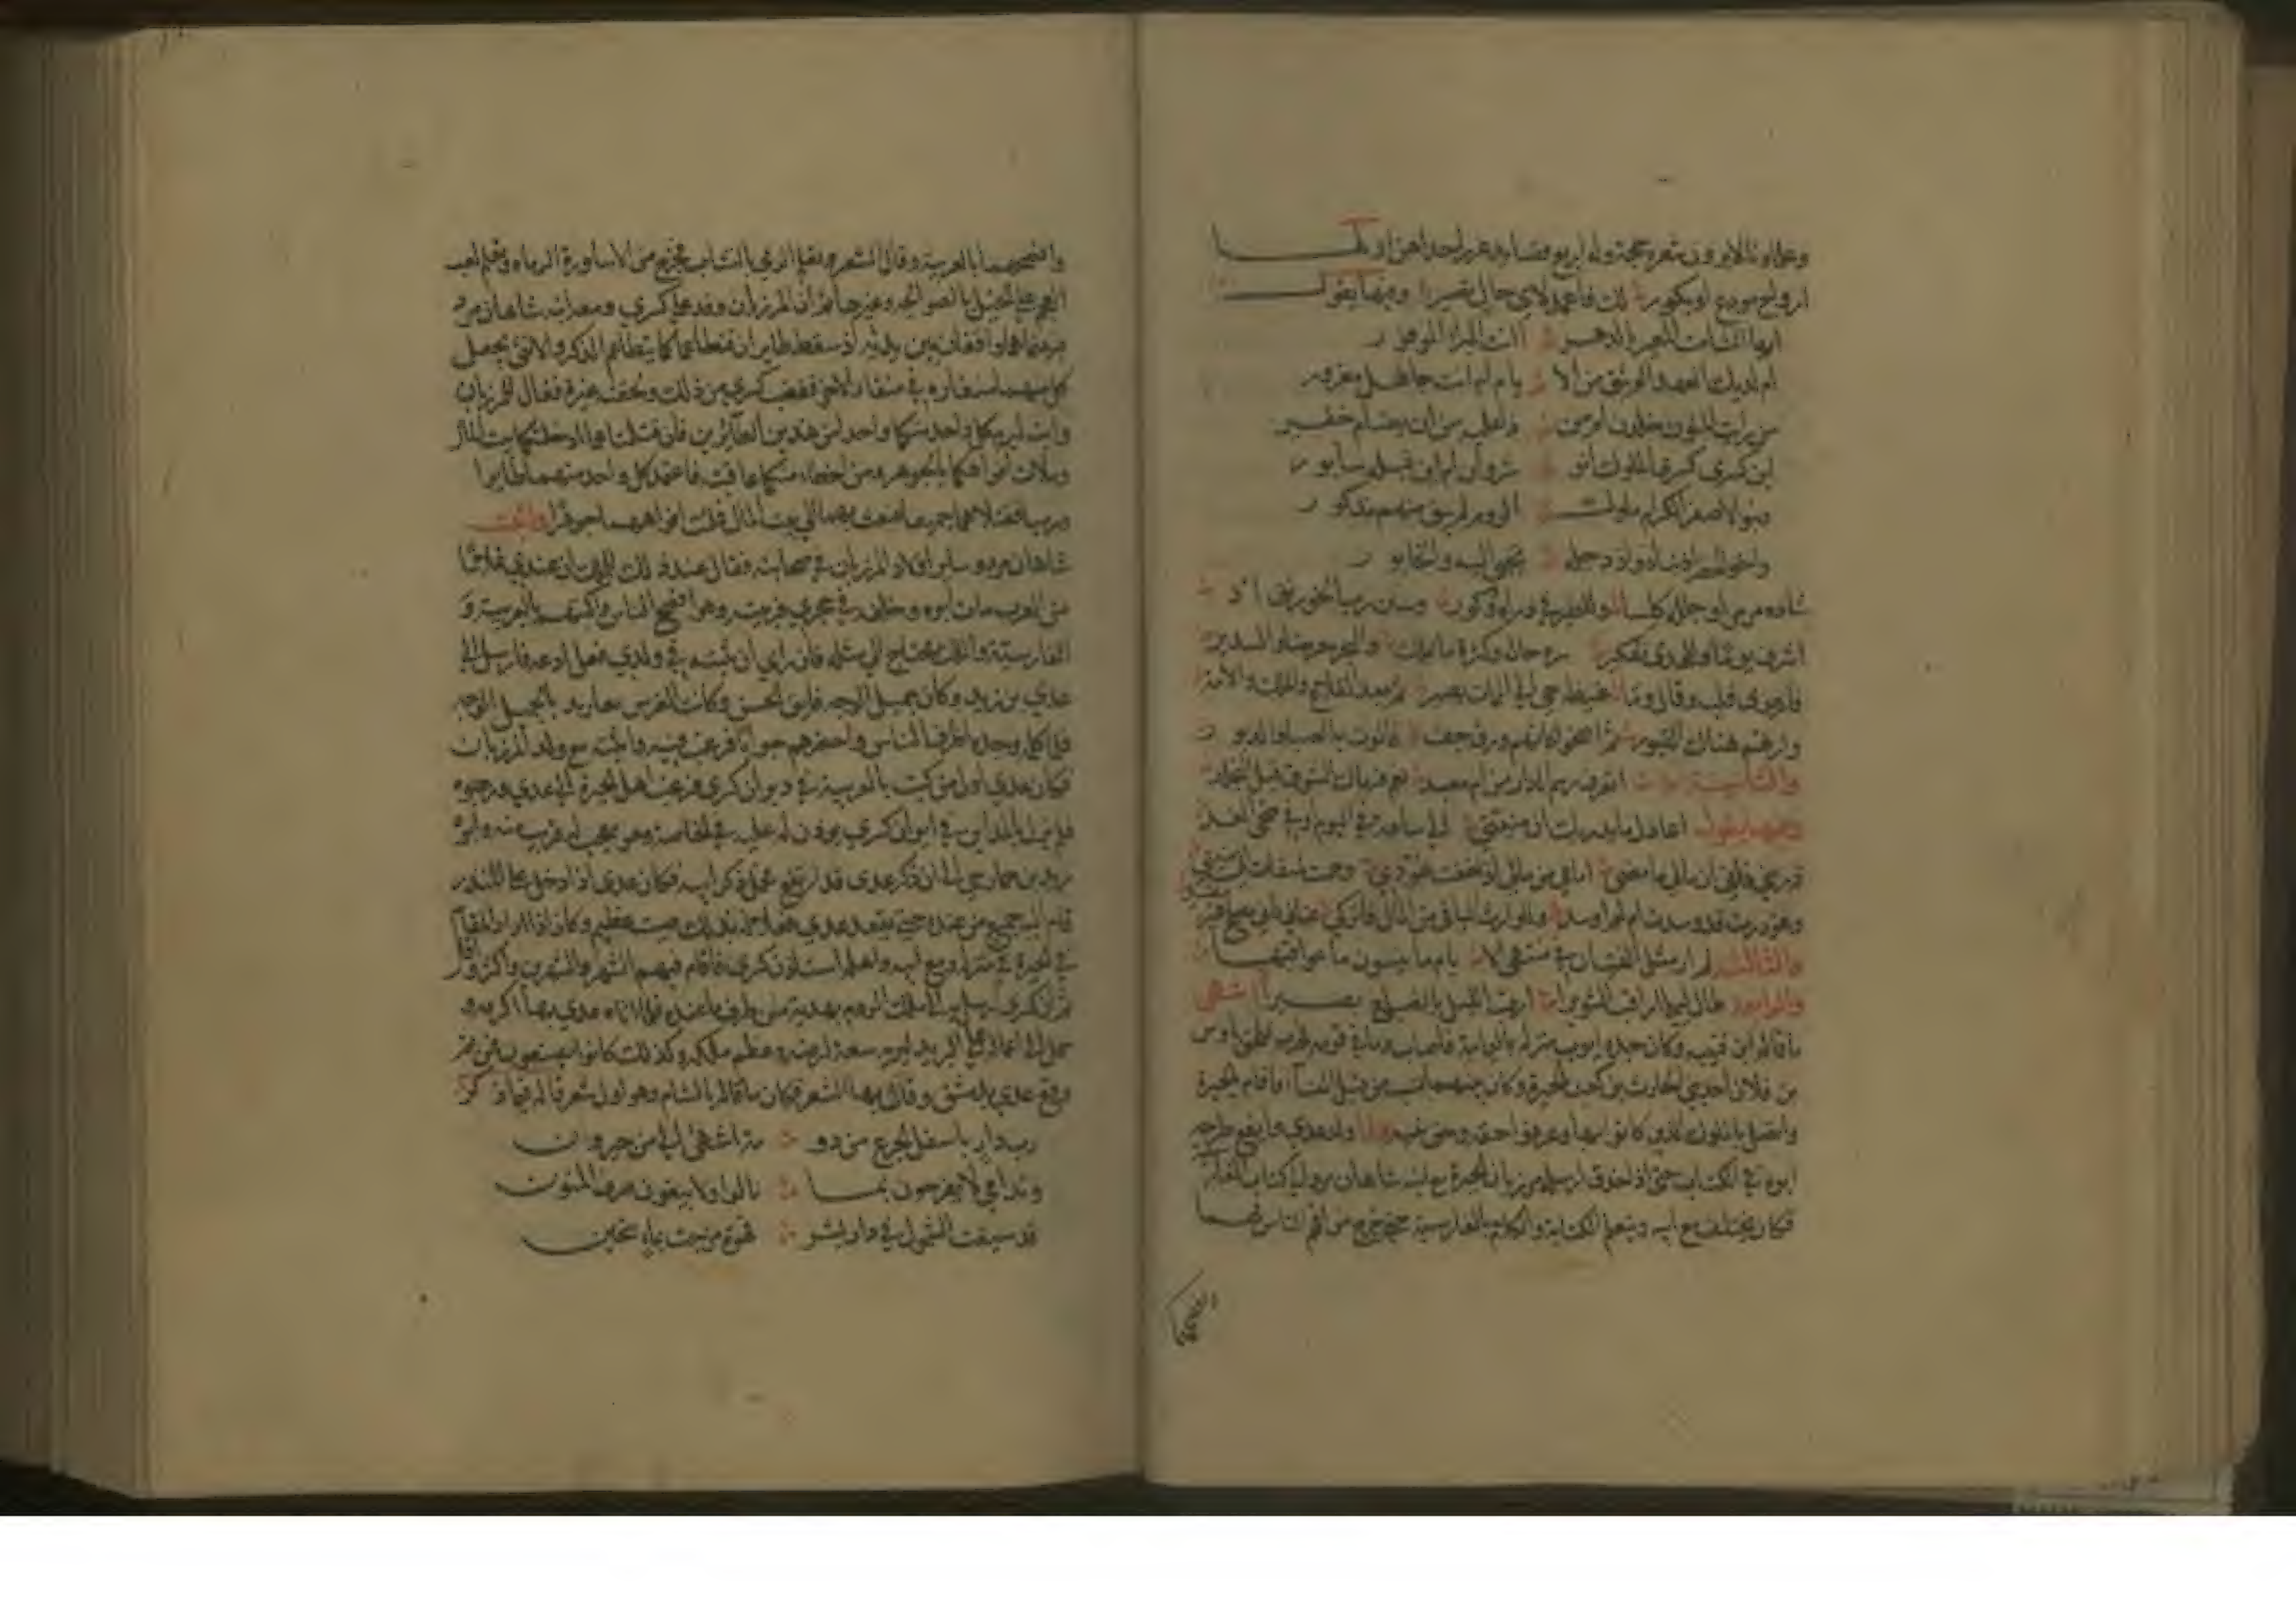 وعلماؤنا لا يرون شعره حجة وله اربع قصايد غرر احداهن اولها
ارواح مودع او بكور لك فاعمد لاي حال تصير وفيها يقول
ايها الشامت المعير بالدهر أانت المبرأ الموفور
ام لديك العهد الوثيق من الا يام ام انت جاهل مغرور
من رايت المنون خلدن ام من ذا عليه من ان يضام خفير
اين كسرى كسرى الملوك انو شروان ام اين قبله سابور
وبنو الاصفر الكرام ملوك الروم لم يبق منهم مذكور
واخو الحضر اذ بناه واذ دجلة تجبى اليه والخابور
شاده مرمرا وجلله كلسا وللطير في ذراه وكور وتبين رب الخورنق اذ
اشرف يوما وللهدى تفكير سره حاله وكثرة ما يملك والبحر معرضا والسدير
فارعوى قلبه وقال وما غبطة حي الى الممات يصير ثم بعد الفلاح والملك والامة
وارتهم هناك القبور ثم اضحوا كانهم ورق جف فالوت به الصبا والدبور
والثانية اتعرف رسم الدار من ام معبد نعم فرماك الشوق قبل التجلد
وفيها يقول اعاذل ما يدريك ان منيتي الى ساعة في اليوم او في ضحى الغد
ذريني فاني ان مالي ما مضى امامي من مالي اذا خف عودي وحمت لميقات الى منيتي
وغودرت قد وسدت ام لم اوسد وللوارث الباقي من المال فاتركي عتابي فاني مصلح غير مفسد
والثالثة لم ار مثل الفتيان في غبن الا يام ما ينسون ما عواقبها
والرابعة طال ليلي اراقب التنويرا ارقب الليل بالصباح بصيرا انتهى
ما قاله ابن قتيبة وكان جده ايوب منزله باليمامة فاصاب دما في قومه فهرب فلحق باوس
بن قلام احد بني الحارث بن كعب بالحيرة وكان بينهما نسب من قبل النسا فاقام بالحيرة
واتصل بالملوك الذين كانوا بها وعرفوا حقه وحق بنيه ولما ولد عدي وايفع طرحه
ابوه في الكتاب حتى اذا حذق ارسله مرزبان الحيرة مع ابنه شاهان مرد الى كتاب الفارسية
فكان يختلف مع ابنه ويتعلم الكتابة والكلام بالفارسية حتى خرج من افهم الناس بها
وافصحهم
وافصحهما بالعربية وقال الشعر وتعلم الرمي بالنشاب فخرج من الاساورة الرماة وتعلم لعب
العجم على الخيل بالصوالجة وغيرها ثم ان المرزبان وفد على كسرى ومعه ابنه شاهان مرد
فبينما هما واقفان بين يديه اذ سقط طايران فتطاعما كما يتطاعم الذكر والانثى يجعل
كل منهما منقاره في منقار الاخر فغضب كسرى من ذلك ولحقته غيرة فقال للمرزبان
وابنه ليرم كل واحد منكما واحدا من هذين الطائرين فان قتلتماهما ادخلتكما بيت المال
وملات افواهكما بالجوهر ومن اخطا منكما عاقبته فاعتمد كل واحد منهما طايرا
ورميا فقتلاهما جميعا فبعث بهما الى بيت المال فملئت افواههما جوهرا واثبت
شاهان مرد وساير اولاد المرزبان في صحابته فقال عند ذلك للملك ان عندي غلاما
من العرب مات ابوه وخلفه في حجري فربيته وهو افصح الناس واكتبهم بالعربية و
الفارسية والملك محتاج الى مثله فان راى ان يثبته في ولدي فعل قال ادعه فارسل الى
عدي بن زيد وكان جميل الوجه فايق الحسن وكانت الفرس تتبرك بالجميل الوجه
فلما كلمه وجده اظرف الناس واحضرهم جوابا فرغب فيه واثبته مع ولد المرزبان
فكان عدي اول من كتب بالعربية في ديوان كسرى فرغب اهل الحيرة الى عدي ورهبوه
فلم يزل بالمداين في ديوان كسرى يوذن له عليه في الخاصة وهو معجب به قريب منه وابوه
زيد بن حماد حي الا ان ذكر عدي قد ارتفع وخمل ذكر ابيه فكان عدي اذا دخل على المنذر
قام اليه جميع من عنده حتى يقعد عدي فعلا له بذلك صيت عظيم وكان اذا اراد المقام
في الحيرة في منزله ومع ابيه واهله استاذن كسرى فاقام فيهم الشهر والشهرين واكثر واقل
ثم ان كسرى ارسله الى ملك الروم بهدية من طرف ما عنده فلما اتاه عدي بها اكرمه و
حمله الى اعماله على البريد ليريه سعة ارضه وعظم ملكه وكذلك كانوا يصنعون فمن ثم
وقع عدي بدمشق وقال بها الشعر فكان ما قاله بالشام وهو اول شعر قاله فيما ذكر
رب دار باسفل الجزع من دو مة اشهى الي من جيرون
وندامى لا يفرحون بما نالوا ولا يتقون صرف المنون
قد سقيت الشمول في دار بشر قهوة مزة بماء سخين